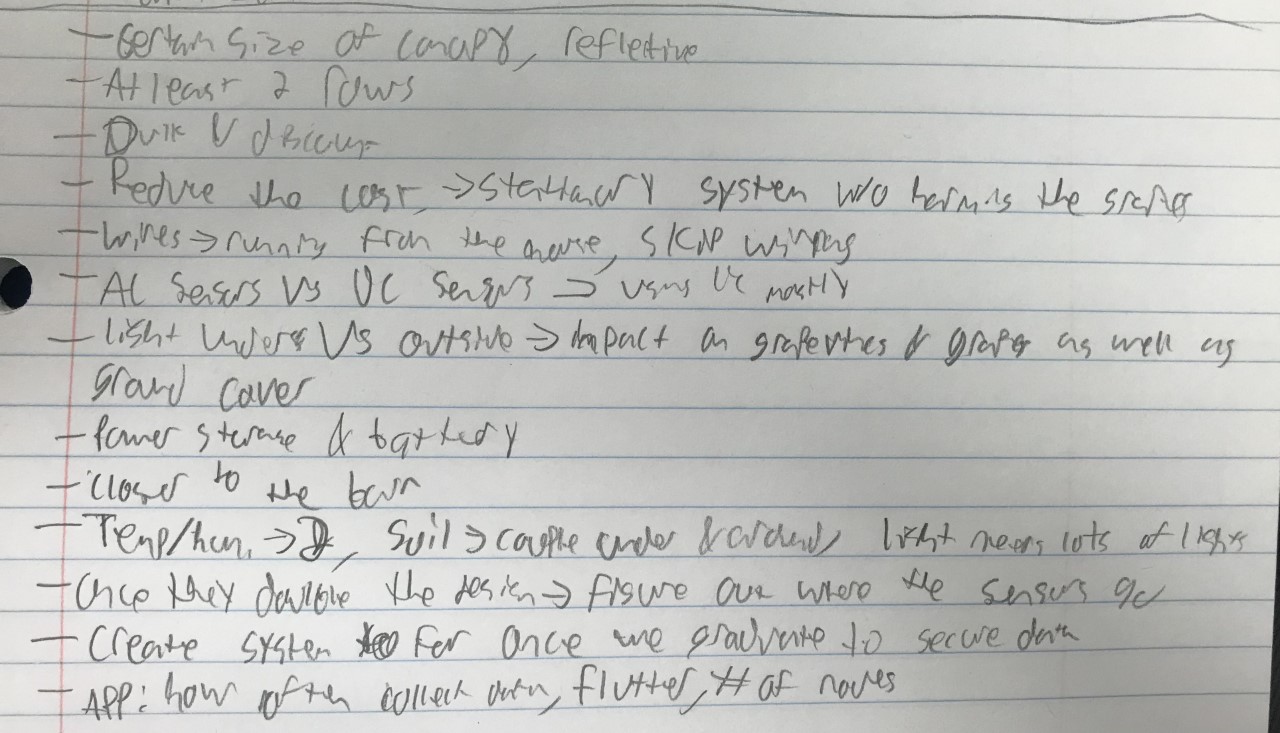 - Certain size of canopy, reflective
- At least 2 rows
- Bulk discount
- Reduce the cost, → stationary system w/o harming the grapes
- Wires → running from the house, skip wiring
- AC Sensors vs DC Sensors → using DC mostly
- light under vs outside → impact on grapevines & grapes as well as
ground cover
- Power storage & battery
- closer to the barn
- Temp/hum, → Soil → couple under & around, light needs lots of lights
- Once they double the design → figure out where the sensors go
- Create system for once we graduate to secure data
- APP: how often collect data, flutter, # of nodes